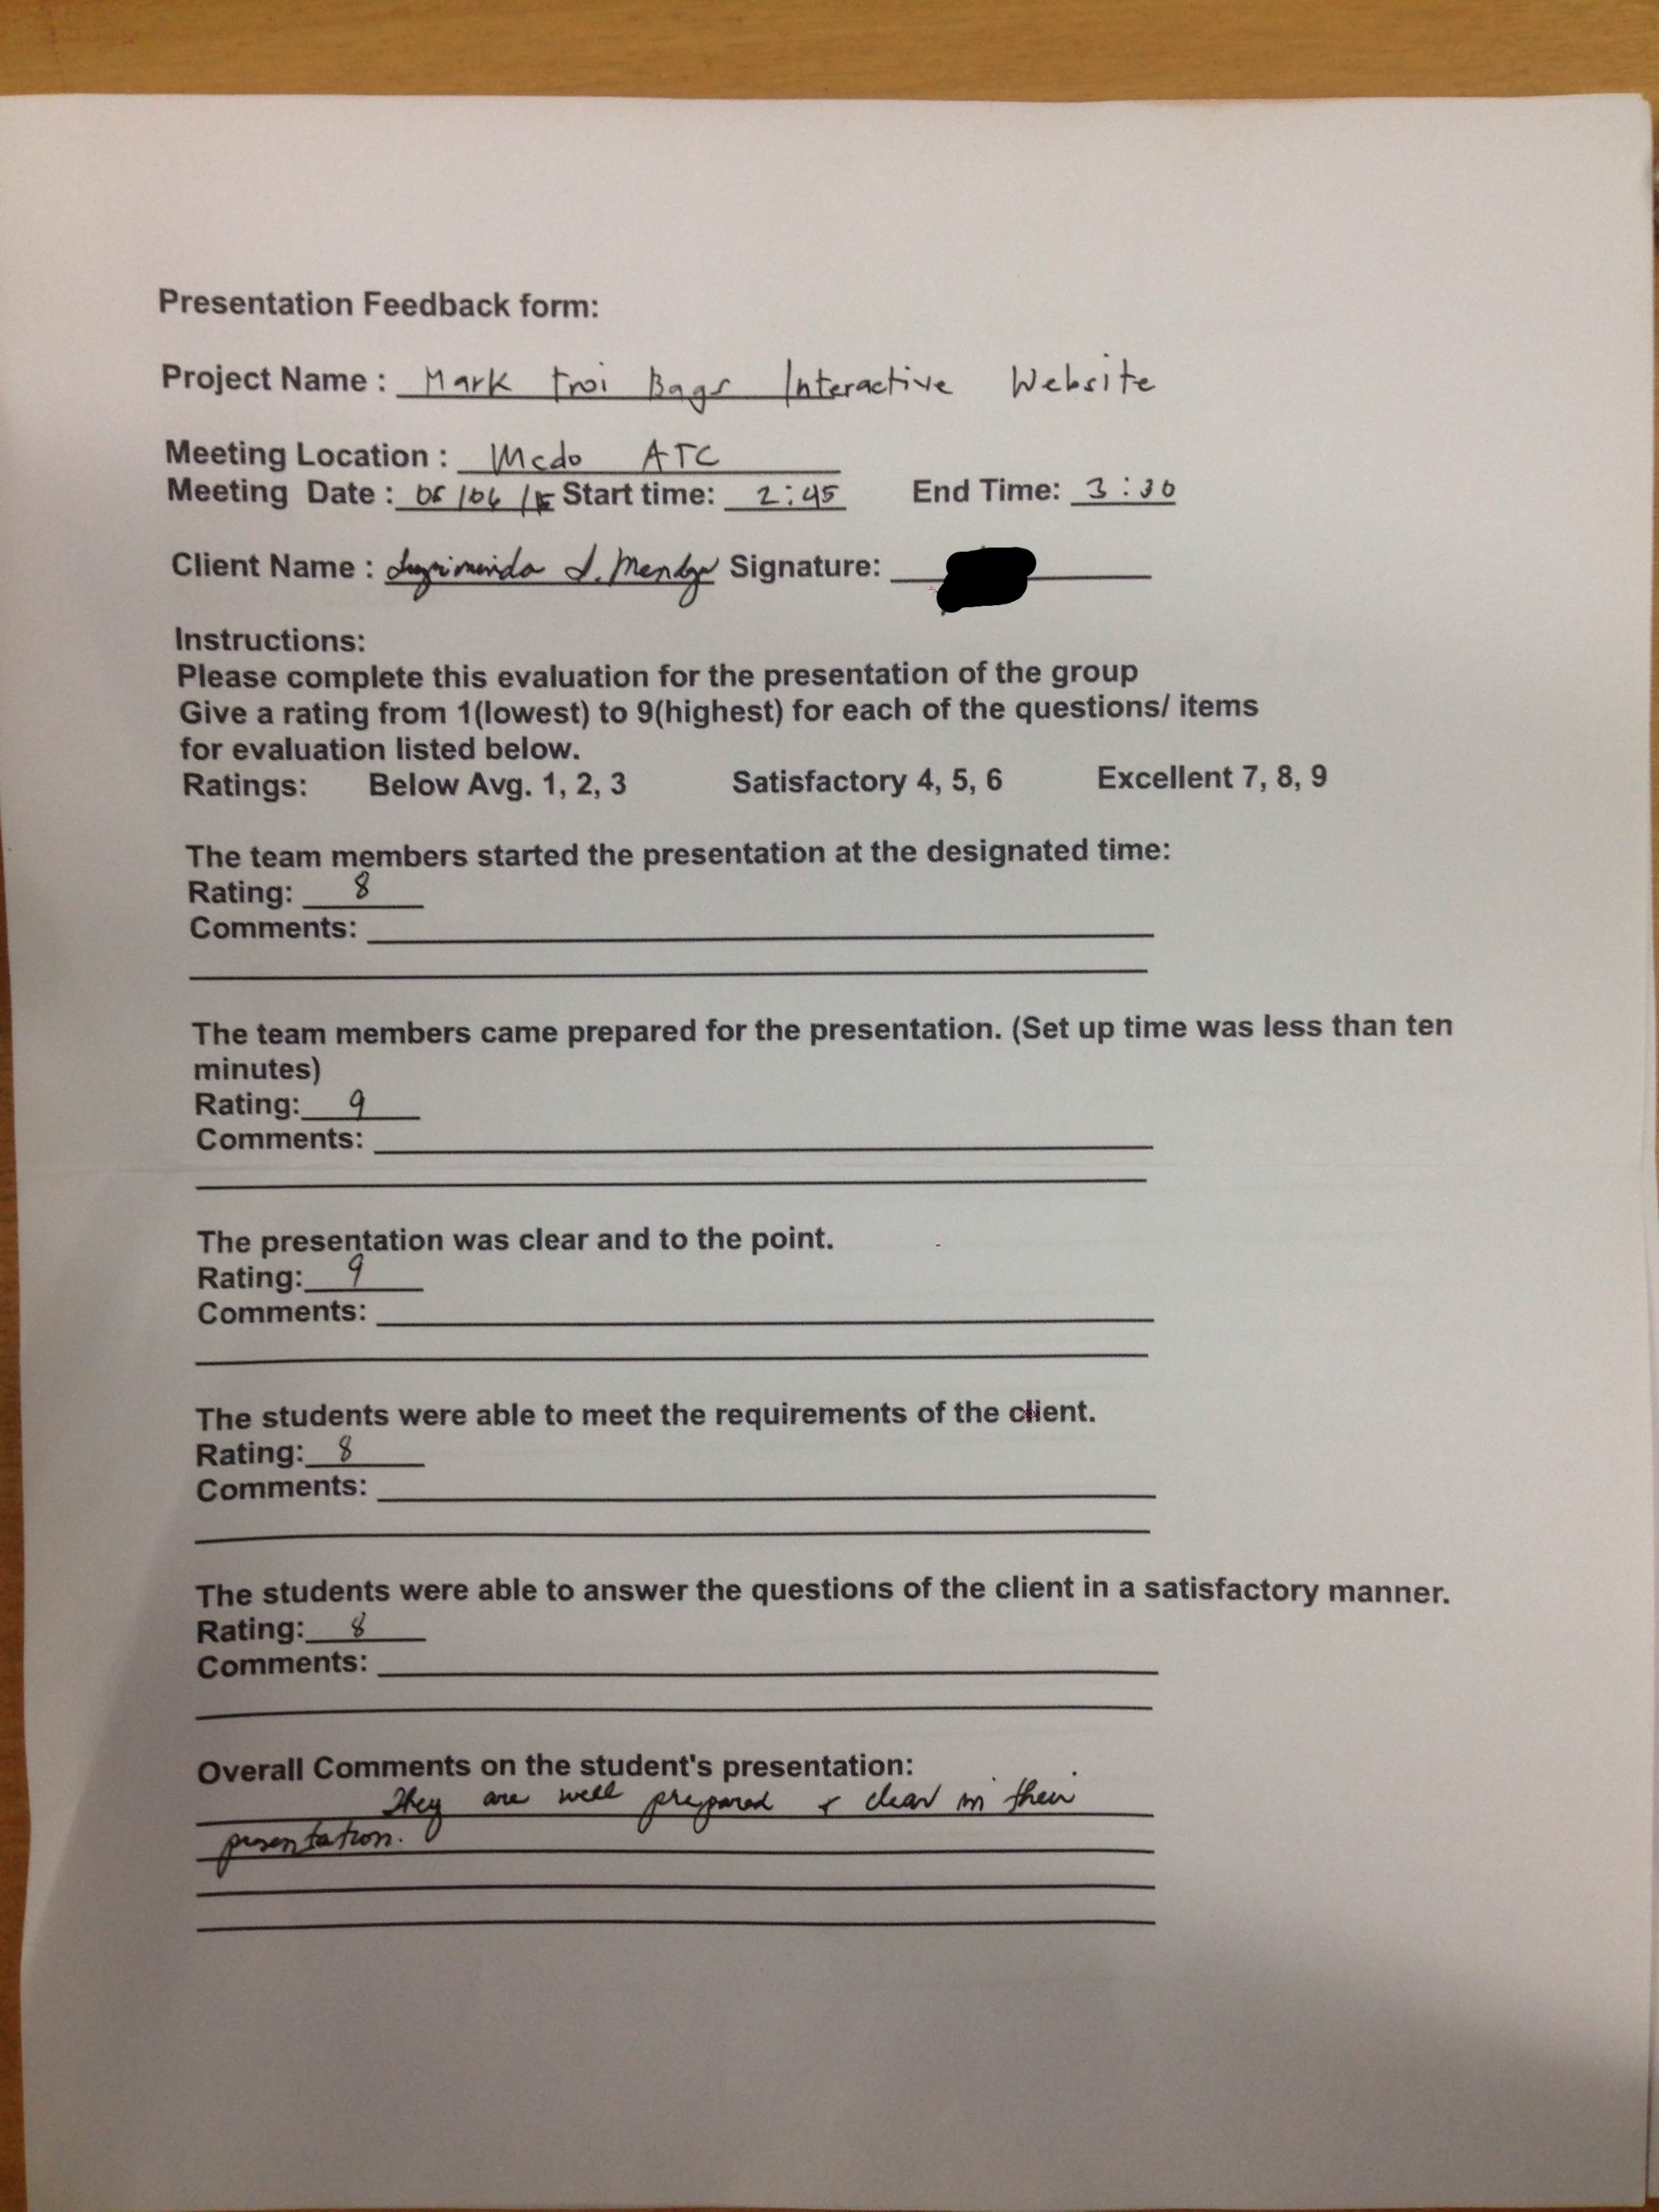 Presentation Feedback form:
Project Name : Mark Troi Bags Interactive Website
Meeting Location : Mcdo ATC
Meeting Date : /06 /15 Start time: 2:45 End Time: 3:30
Client Name : Signature:
Instructions:
Please complete this evaluation for the presentation of the group
Give a rating from 1(lowest) to 9(highest) for each of the questions/ items
for evaluation listed below.
Ratings: Below Avg. 1, 2, 3 Satisfactory 4, 5, 6 Excellent 7, 8, 9
The team members started the presentation at the designated time:
Rating: 8
Comments:
The team members came prepared for the presentation. (Set up time was less than ten
minutes)
Rating: 9
Comments:
The presentation was clear and to the point.
Rating: 9
Comments:
The students were able to meet the requirements of the client.
Rating: 8
Comments:
The students were able to answer the questions of the client in a satisfactory manner.
Rating: 8
Comments:
Overall Comments on the student's presentation:
They are well prepared & clear in their
presentation.